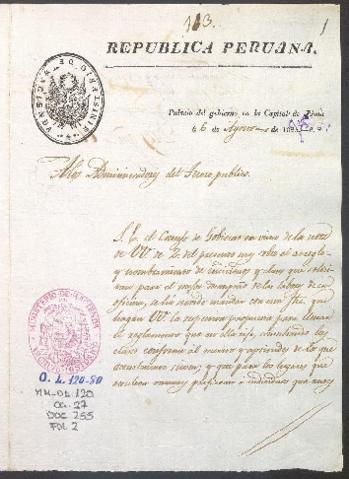 113.
1
REPUBLICA PERUANA.
MINISTERIO DE HACIENDA
Palacio del gobierno en la Capital de Lima
á 6 de Agosto de 182
Administradores del Tesoro publico.
S. E. el Consejo de Gobierno en vista de la nota
de VV. de 2 del presente mes sobre el arreglo
y nombramiento de
para el mejor de las labores de esa
oficina, se ha servido mandar con esta fha. que
hagan VV. la respectiva propuesta para llenar
el reglamento que en ella rije, consultando las
clases conforme al merito y aptitudes de los que
actualmente sirven; y que para los lugares que
resulten vacantes, individuos que
MINISTERIO DE HACIENDA
O. L. 120-80
MH-OL.120
CA. 27
DOC 255
FOL 2